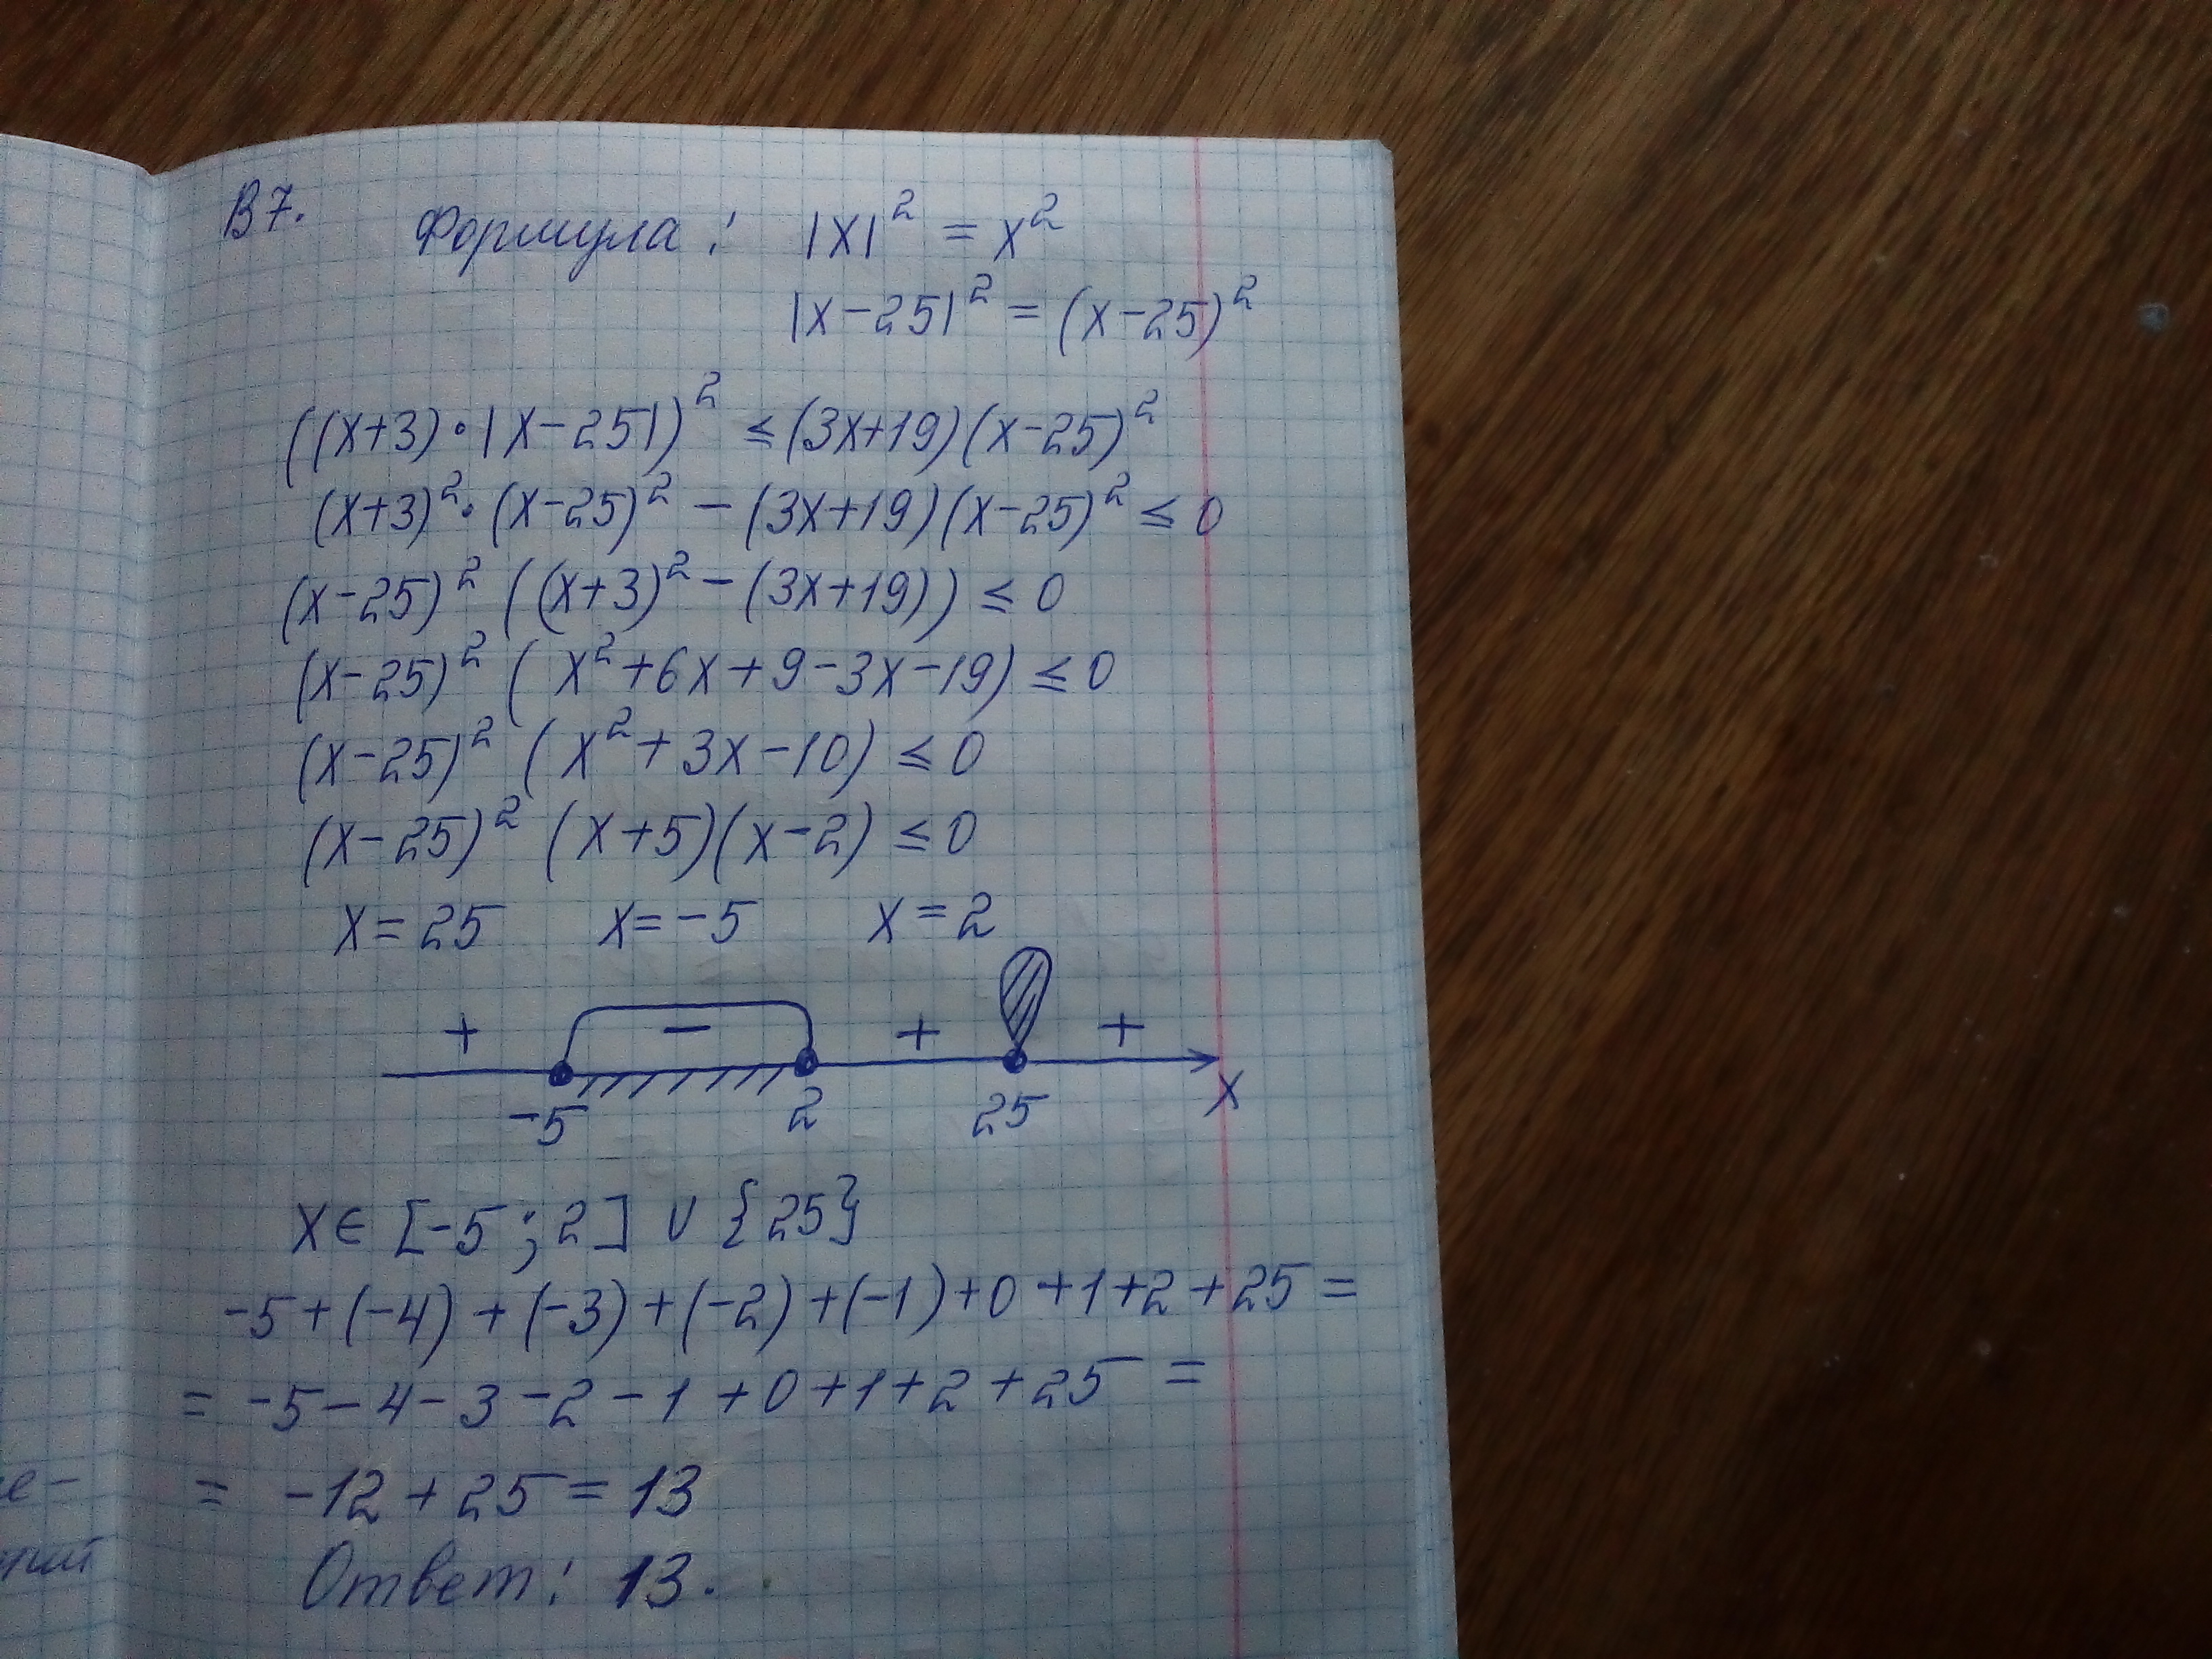 В7. Формула: |x|² = x²
|x-25|² = (x-25)²
((x+3)·|x-25|)² ≤ (3x+19)(x-25)²
(x+3)²·(x-25)² - (3x+19)(x-25)² ≤ 0
(x-25)² ((x+3)² - (3x+19)) ≤ 0
(x-25)² (x²+6x+9-3x-19) ≤ 0
(x-25)² (x²+3x-10) ≤ 0
(x-25)² (x+5)(x-2) ≤ 0
x=25 x=-5 x=2
+ - + +
-5 2 25 x
x∈ [-5; 2] ∪ {25}
-5+(-4)+(-3)+(-2)+(-1)+0+1+2+25=
= -5-4-3-2-1+0+1+2+25=
= -12+25=13
Ответ: 13.